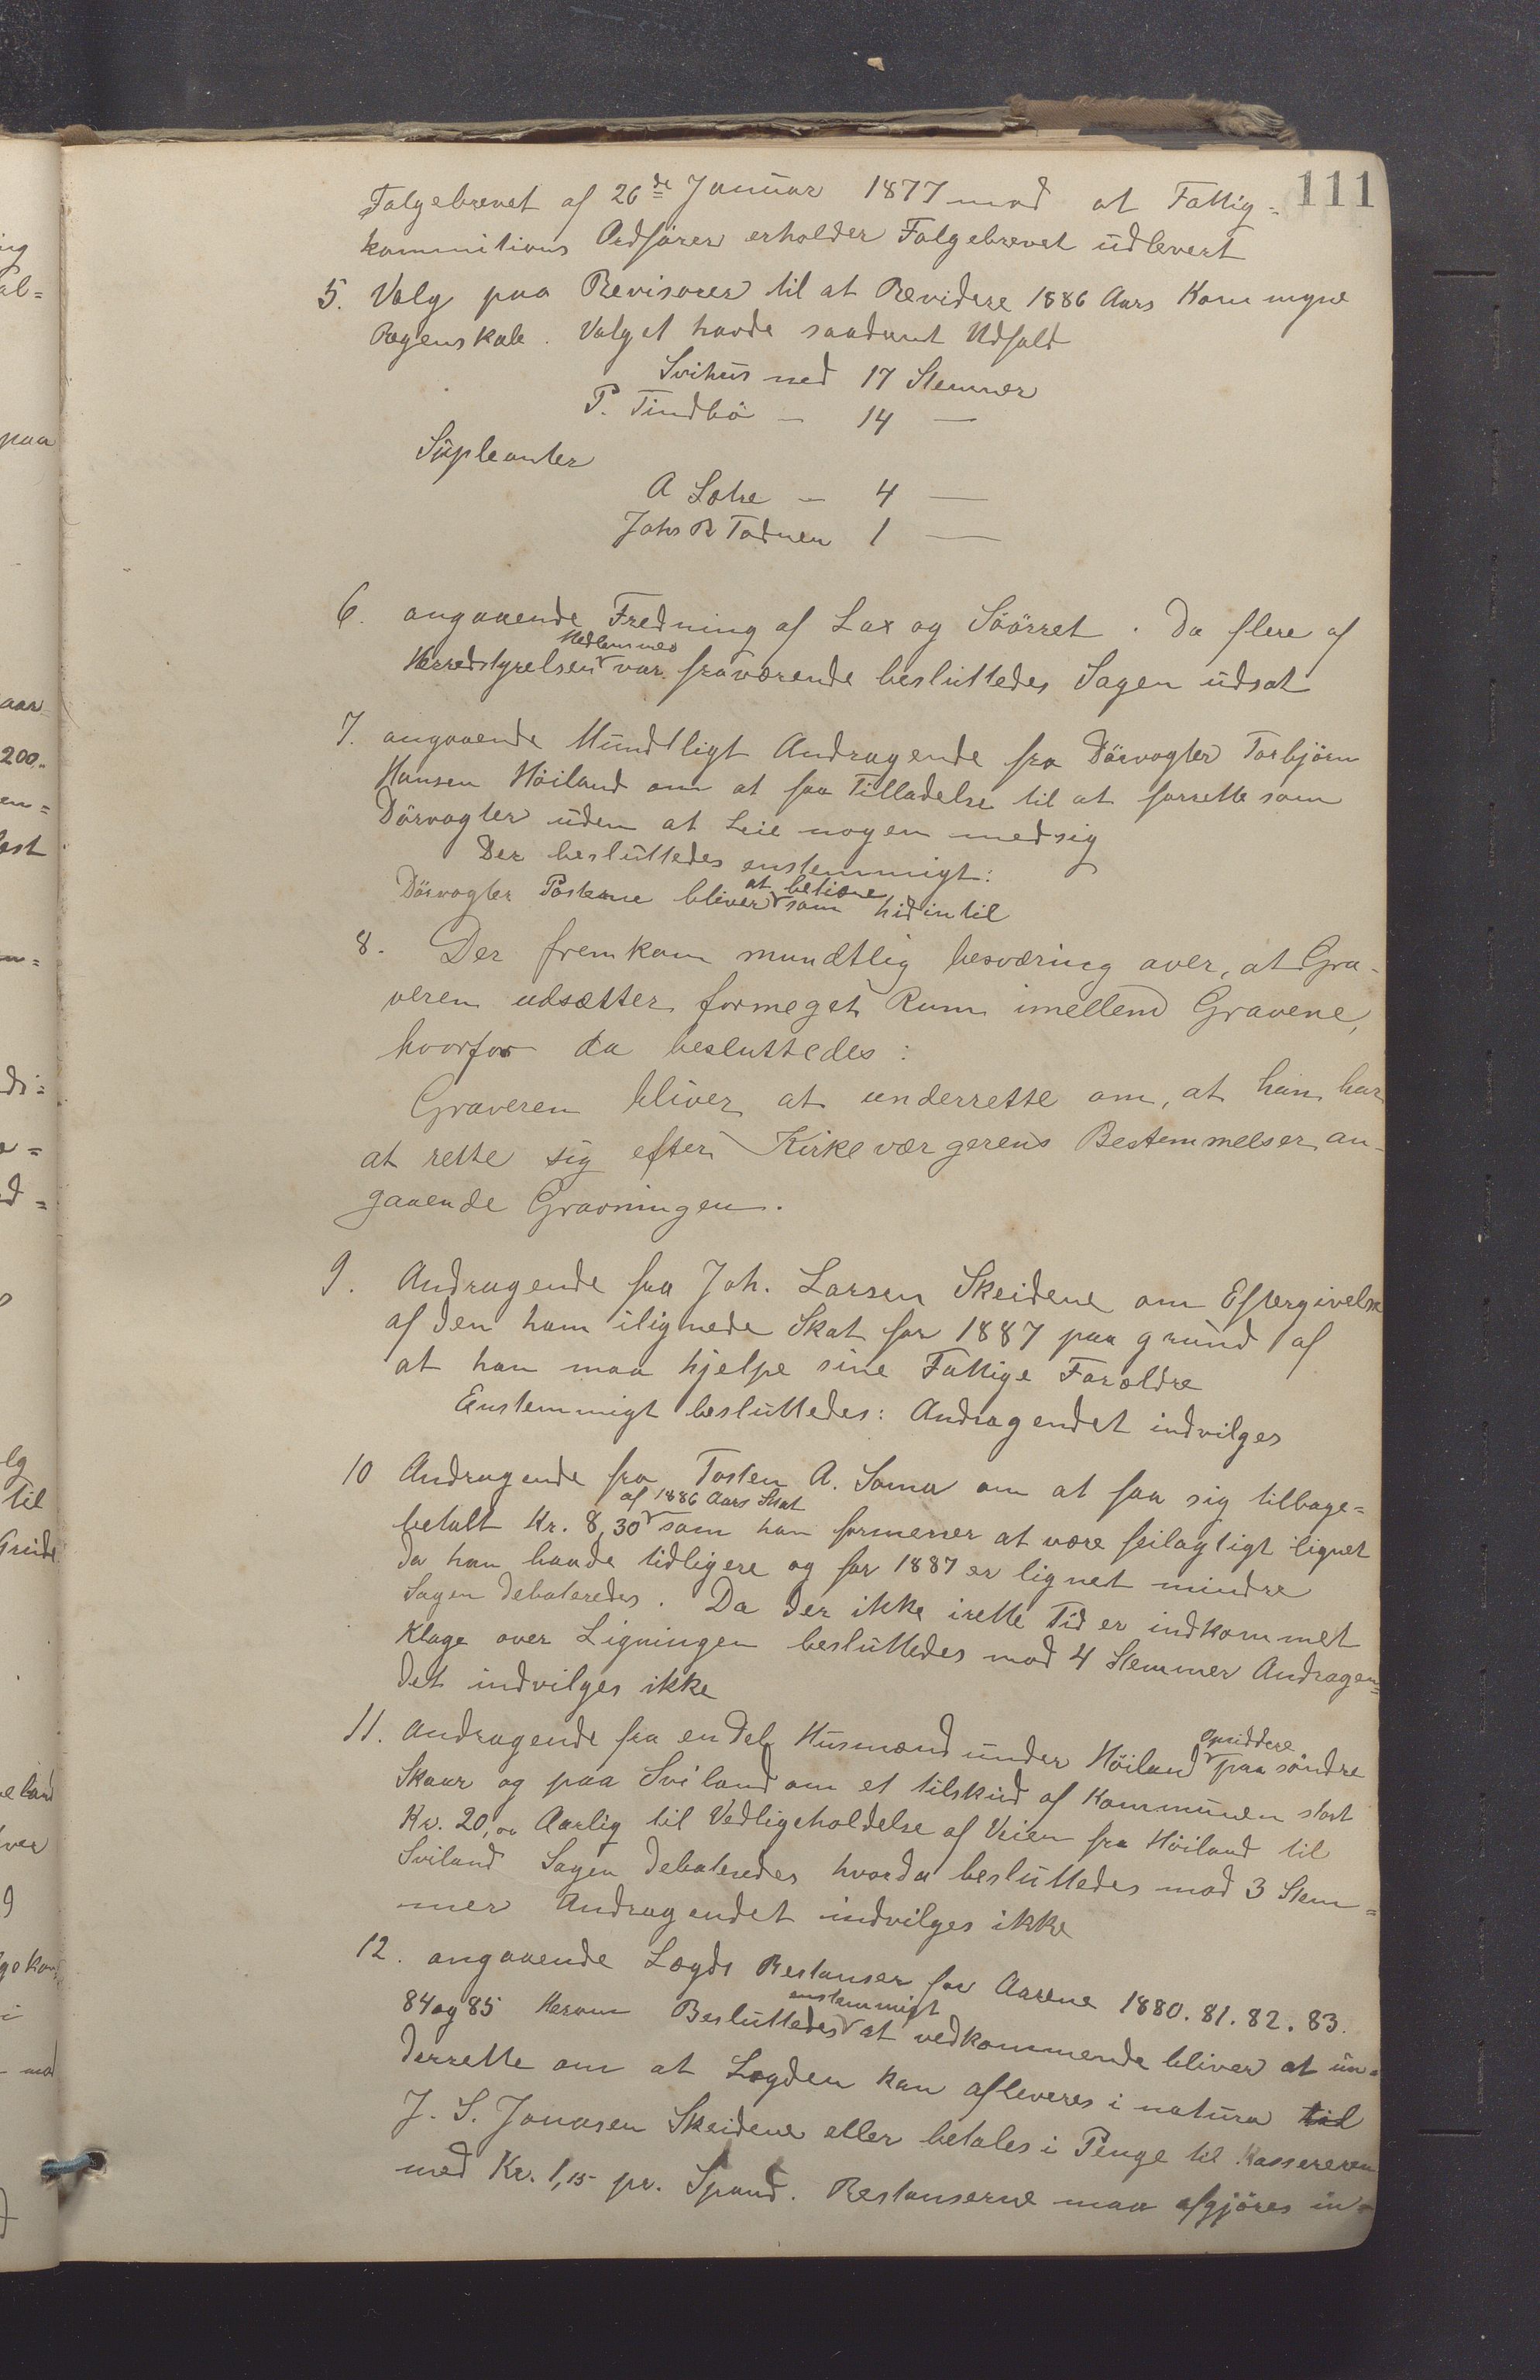 111
Følgebrevet af 26de Januar 1877 mod at Fattig=
kommitions Ordförer erholder Følgebrevet udlevert
5. Valg paa Revisorer til at Revidere 1886 Aars Kommune
Regenskab. Valget havde saadant Udfald
Svihus med 17 Stemmer
P. Tindbö – 14 —
Supleanter
A Sæhe – 4 —
Johs R Todnem 1 —
6. angaaende Fredning af Lax og Söörret. Da flere af
Medlemmer
Herredstyrelsen var fraværende besluttedes Sagen udsat
7. angaaende Mundtligt Andragende fra Dörvogter Torbjörn
Hansen Höiland om at faa Tilladelse til at forrette som
Dörvogter uden at Leie nogen med sig
Der besluttedes enstemmigt:
at betjene
Dörvogter Posterne bliver som hidintil
8. Der fremkom mundtlig besværing over, at Gra-
veren udsætter formeget Rum imellem Gravene,
hvorfor da besluttedes:
Graveren bliver at underrette om, at han har
at rette sig efter Kirkeværgerens Bestemmelser an-
gaaende Gravningen.
9. Andragende fra Joh. Larsen Skeidene om Eftergivelse
af den ham ilignede Skat for 1887 paa grund af
at han maa hjelpe sine Fattige Forældre
Enstemmigt besluttedes: Andragendet indvilges
10 Andragende fra Tosten A. Soma om at faa sig tilbage=
af 1886 Aars Skat
betalt Kr. 8,30 som han formener at være feilagtigt lignet
da han baade tidligere og for 1887 er lignet mindre
Sagen debateredes. Da der ikke irette Tid er indkommet
Klage over Ligningen besluttedes mod 4 Stemmer Andragen=
det indvilges ikke
11. Andragende fra endel Husmænd under Höiland paa söndre
Skaar og paa Sviland om et tilskud af Kommunen stort
Kr. 20,00 Aarlig til Vedligeholdelse af Veien fra Höiland til
Sviland Sagen debateredes hvorda besluttedes mod 3 Stem=
mer Andragendet indvilges ikke
12. angaaende Lægds Restanser for Aarene 1880. 81. 82. 83.
enstemmigt
84 og 85 Herom Besluttedes at vedkommende bliver at un=
derrette om at Lægden kan afleveres i natura til
J. S. Jonasen Skeidene eller betales i Penge til Kassereren
med Kr. 1,15 pr. Spand. Restanserne maa afgjöres in=